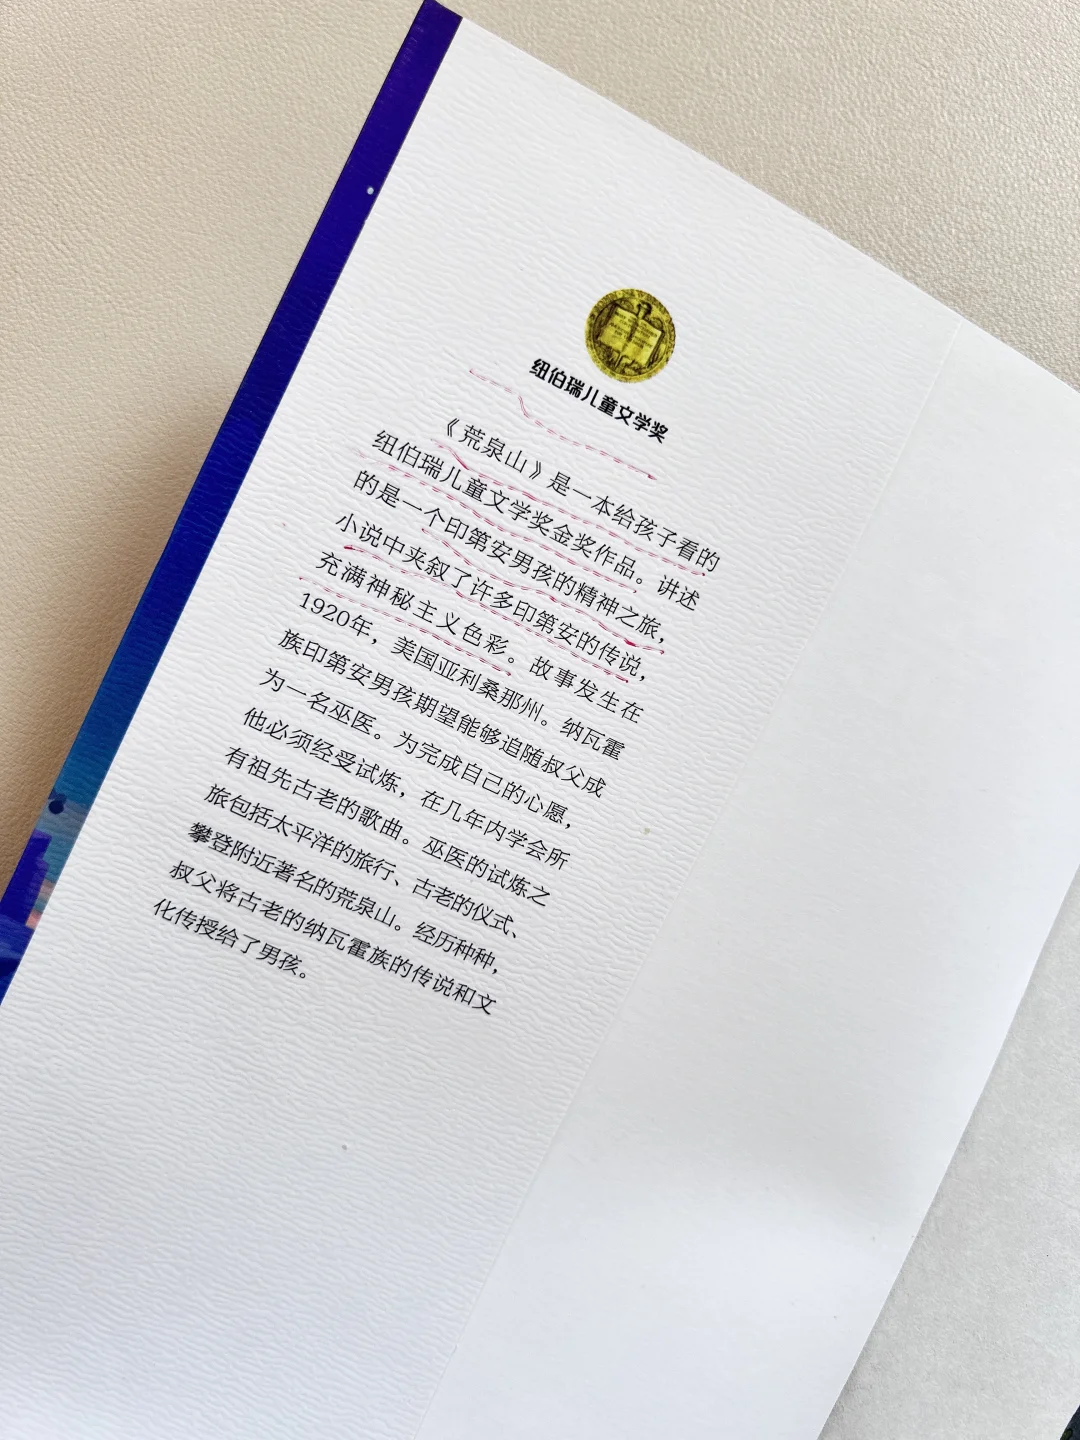 纽伯瑞儿童文学奖
《荒泉山》是一本给孩子看的
纽伯瑞儿童文学奖金奖作品。讲述
的是一个印第安男孩的精神之旅，
小说中夹叙了许多印第安的传说，
充满神秘主义色彩。故事发生在
1920年，美国亚利桑那州。纳瓦霍
族印第安男孩期望能够追随叔父成
为一名巫医。为完成自己的心愿，
他必须经受试炼，在几年内学会所
有祖先古老的歌曲。巫医的试炼之
旅包括太平洋的旅行、古老的仪式、
攀登附近著名的荒泉山。经历种种，
叔父将古老的纳瓦霍族的传说和文
化传授给了男孩。